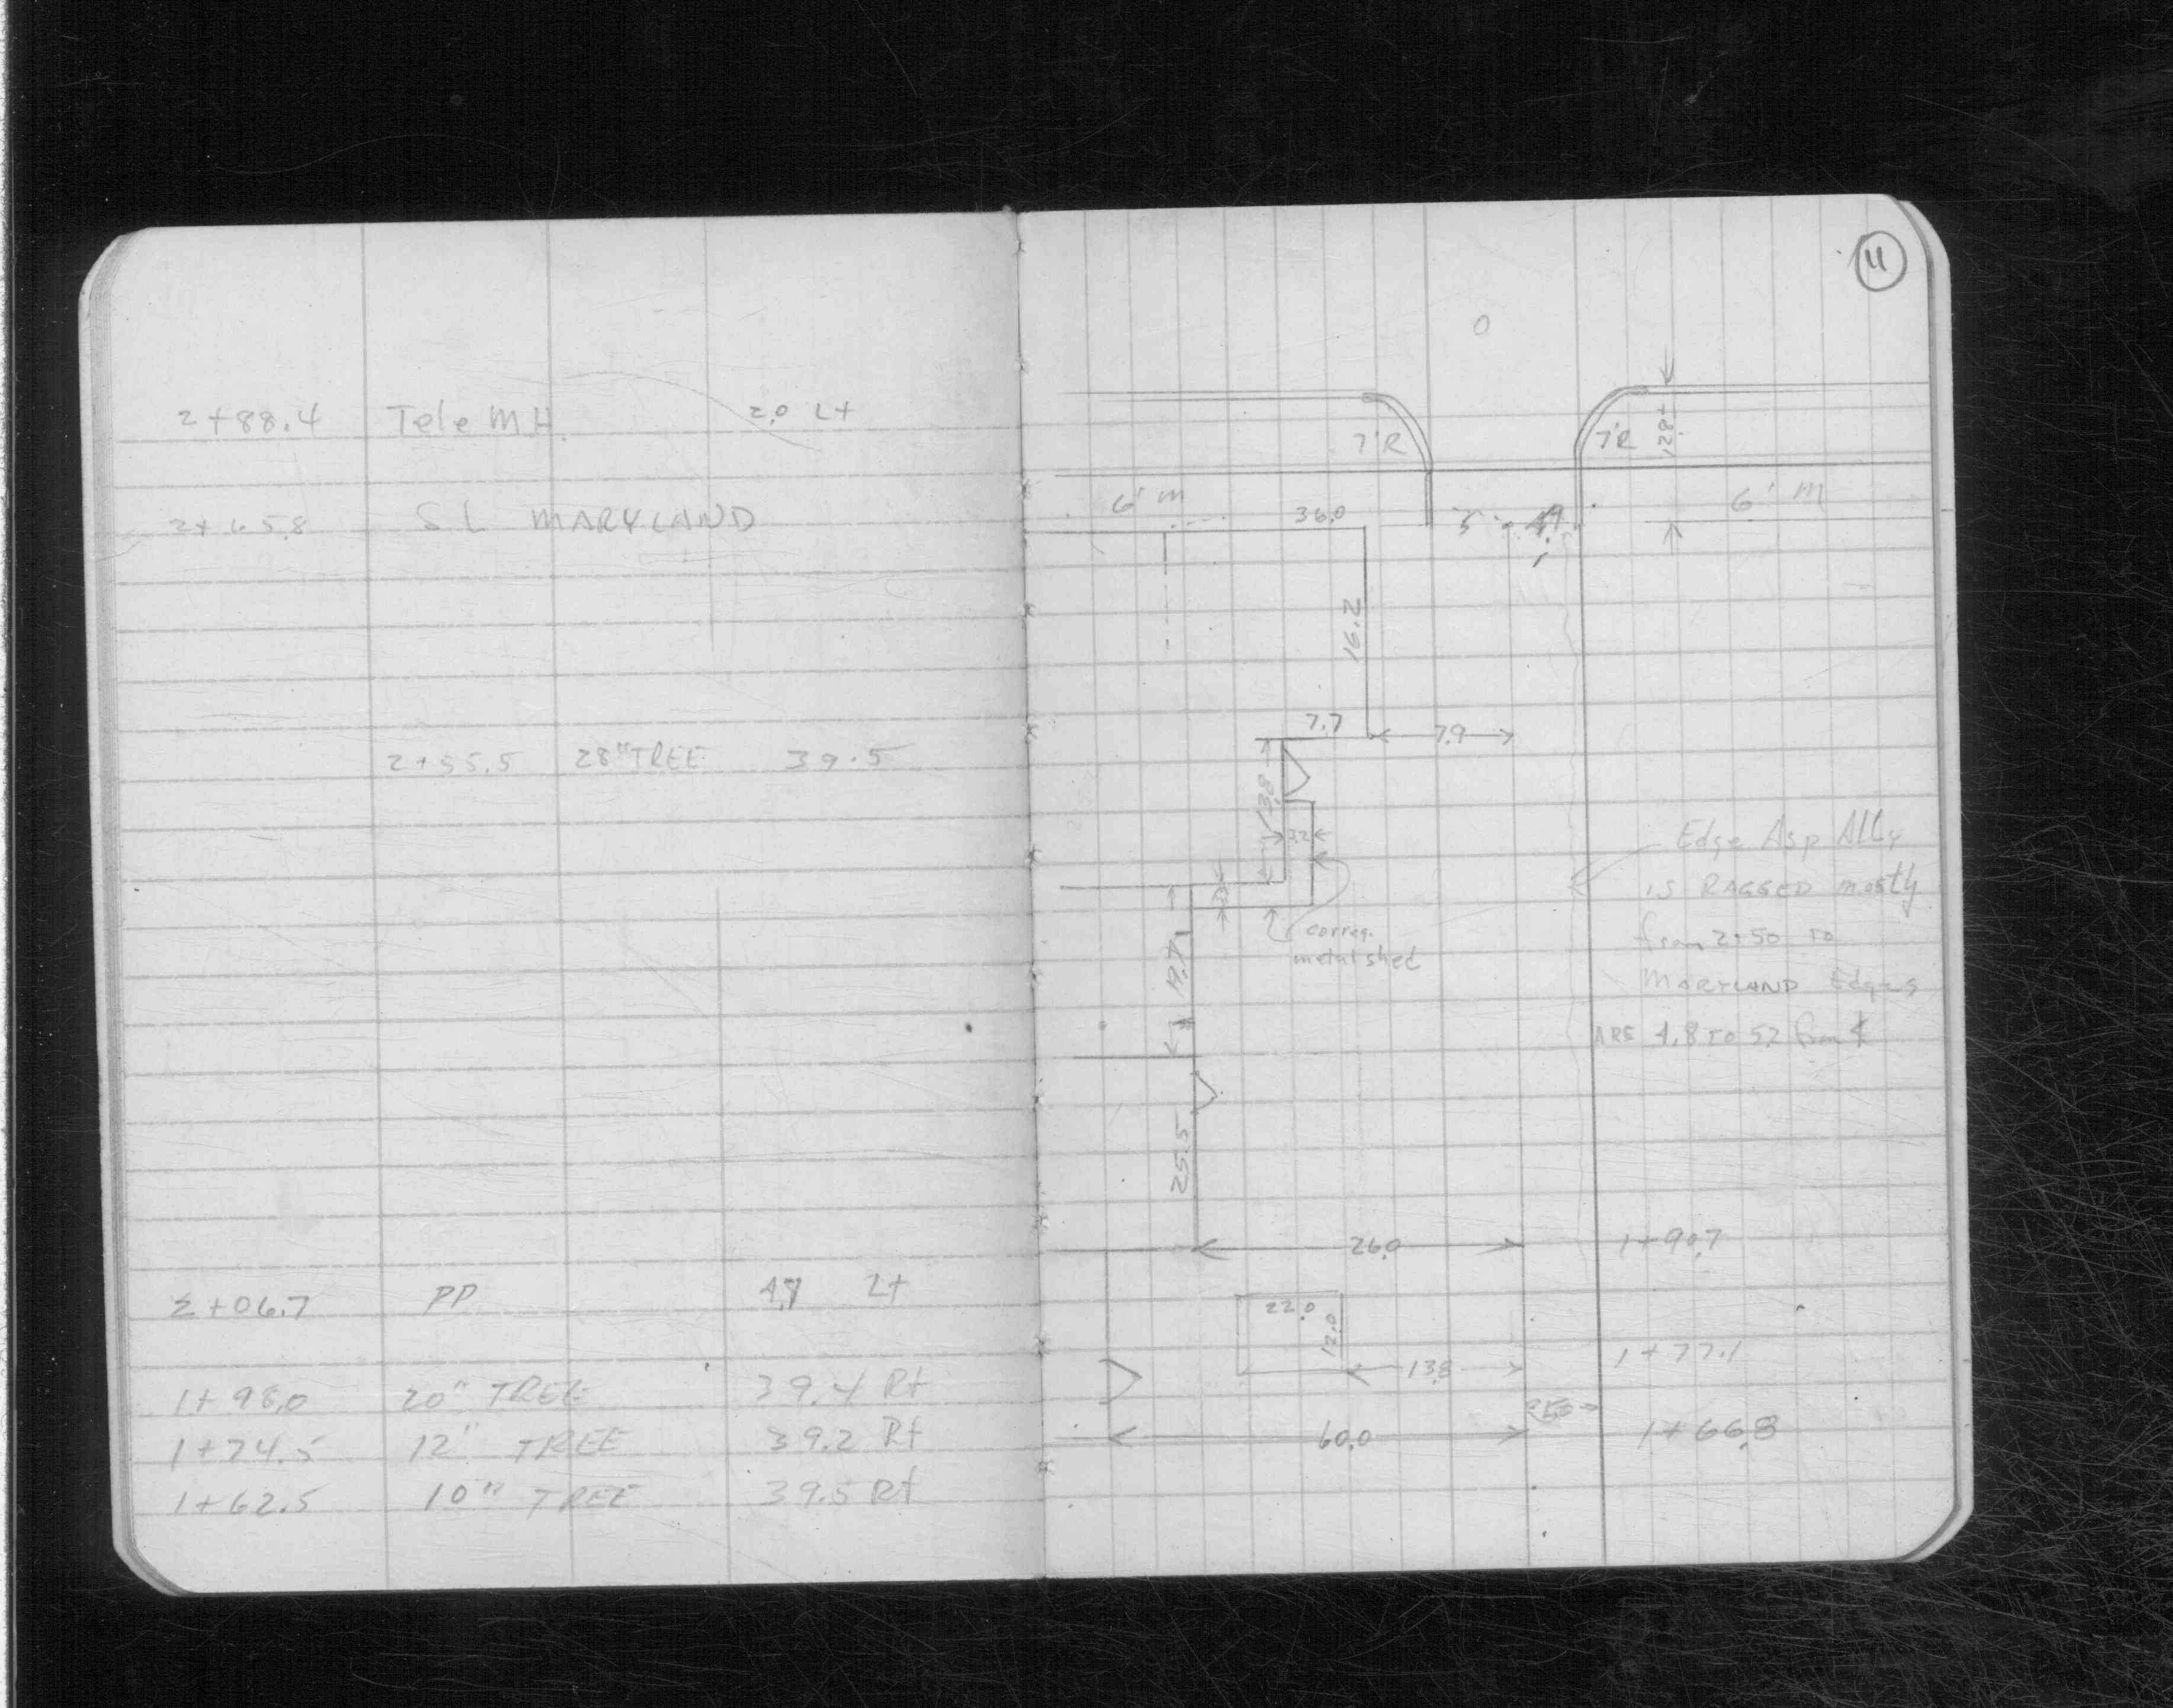 11
2+88.4 Tele M.H. 2.0 Lt
2+65.8 S L MARYLAND
2+55.5 28" TREE 39.5
2+06.7 PP Lt
1+98.0 20" TREE 39.4 Rt
1+74.5 12" TREE 39.2 Rt
1+62.5 10" TREE 39.5 Rt
7'R
7'R
12.8
6' M
36.0
6' M
16.2
7.7
7.9
13.8
3.2
correg.
metal shed
Edge Asp Ally
IS RAGGED mostly
from 2+50 TO
MARYLAND Edges
ARE 4.8 TO 5.2 from ℄
25.5
26.0
1+90.7
22.0
12.0
13.8
1+77.1
60.0
1+66.8